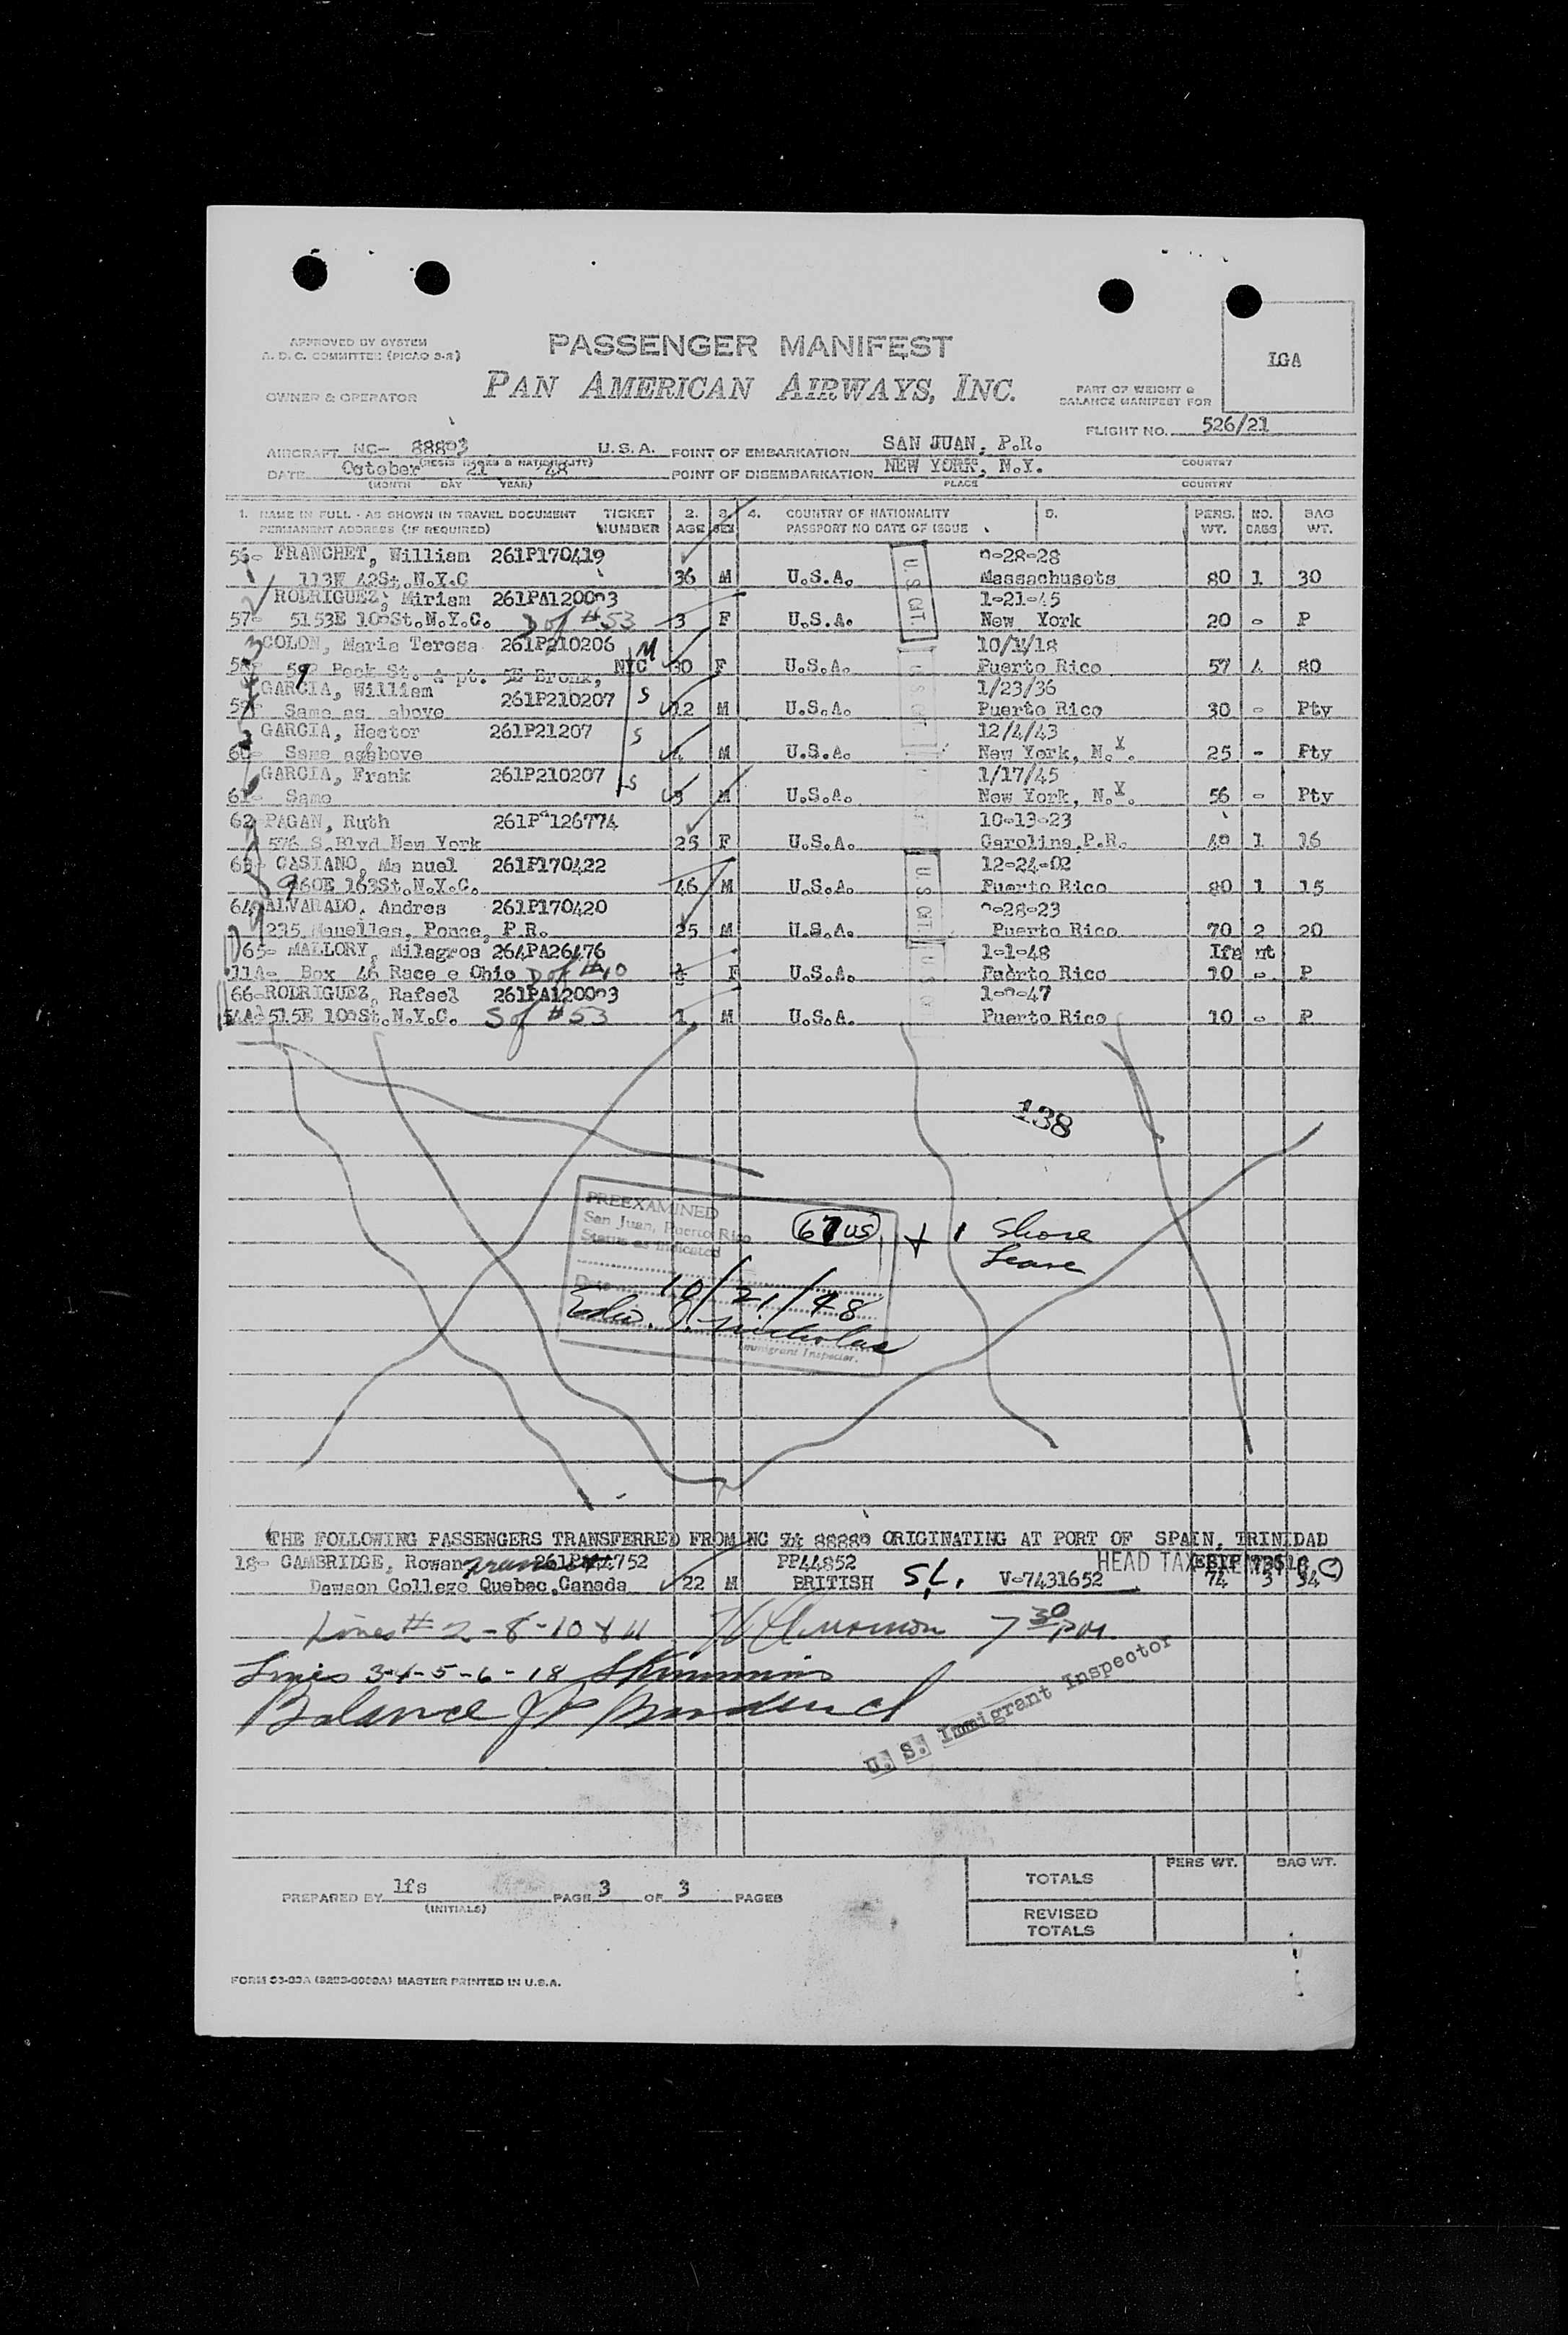 APPROVED BY SYSTEM
A. D. C. COMMITTEE (PICAO S-R)
PASSENGER MANIFEST
LGA
OWNER & OPERATOR
PAN AMERICAN AIRWAYS, INC.
PART OF WEIGHT &
BALANCE MANIFEST FOR
FLIGHT NO. 526/21
AIRCRAFT NC- 88803 U.S.A. POINT OF EMBARKATION SAN JUAN, P.R.
COUNTRY
DATE October 21 48 POINT OF DISEMBARKATION NEW YORK, N.Y.
(MONTH DAY YEAR) PLACE COUNTRY
1. NAME IN FULL - AS SHOWN IN TRAVEL DOCUMENT TICKET 2. 3. 4. COUNTRY OF NATIONALITY 5. PERS. NO. BAG
PERMANENT ADDRESS (IF REQUIRED) NUMBER AGE SEX PASSPORT NO DATE OF ISSUE WT. BAGS WT.
56- FRANCHET, William 261P170419 -28-28
113E 42St.N.Y.C 36 M U.S.A. Massachusets 80 1 30
RODRIGUEZ, Miriam 261PA120003 1-21-45
57- 5153E 100St.N.Y.C. D of #53 3 F U.S.A. New York 20 - P
COLON, Maria Teresa 261P210206 M 10/1/18
58- Beck St. A pt. 5E Bronx, NYC 30 F U.S.A. Puerto Rico 57 4 80
GARCIA, William 261P210207 S 1/23/36
59- Same as above 12 M U.S.A. Puerto Rico 30 - Pty
GARCIA, Hector 261P21207 S 12/4/43
60- Same as above 4 M U.S.A. New York, N.Y. 25 - Pty
GARCIA, Frank 261P210207 S 1/17/45
61- Same 3 M U.S.A. New York, N.Y. 56 - Pty
62- PAGAN, Ruth 261P 126774 10-13-23
576 S.Blvd New York 25 F U.S.A. Carolina,P.R. 40 1 16
63- CASIANO, Ma nuel 261P170422 12-24-02
960E 163St.N.Y.C. 46 M U.S.A. Puerto Rico 80 1 15
64- ALVARADO, Andres 261P170420 -28-23
235 Ponce, P.R. 25 M U.S.A. Puerto Rico 70 2 20
65- MALLORY, Milagros 264PA26476 1-1-48 Ifa nt
11A- Box 46 Race e Ohio D of #10 F U.S.A. Puerto Rico 10 - P
66- RODRIGUEZ, Rafael 261PA120003 47
54A- 515E 100St.N.Y.C. S of #53 1 M U.S.A. Puerto Rico 10 - P
U.S. CIT.
U.S. CIT.
U.S. CIT.
138
PREEXAMINED
San Juan, Puerto Rico
Status as indicated
67 US + 1 Shore Leave
Date 10/21/48
Nicholas
Immigrant Inspector.
THE FOLLOWING PASSENGERS TRANSFERRED FROM NC 88880 ORIGINATING AT PORT OF SPAIN, TRINIDAD
18- CAMBRIDGE, Rowan PP44852 HEAD TAX
Dawson College Quebec,Canada 22 M BRITISH S.L. V-7431652 74 3 54
Lines # 2-8-10 & 11 7 30 P.M.
Lines 3-4-5-6-18
Balance
U. S. Immigrant Inspector
PREPARED BY lfs PAGE 3 OF 3 PAGES
(INITIALS)
PERS WT. BAG WT.
TOTALS
REVISED
TOTALS
MASTER PRINTED IN U.S.A.